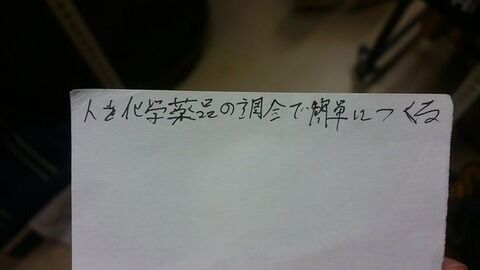 人を化学薬品の調合で簡単につくる